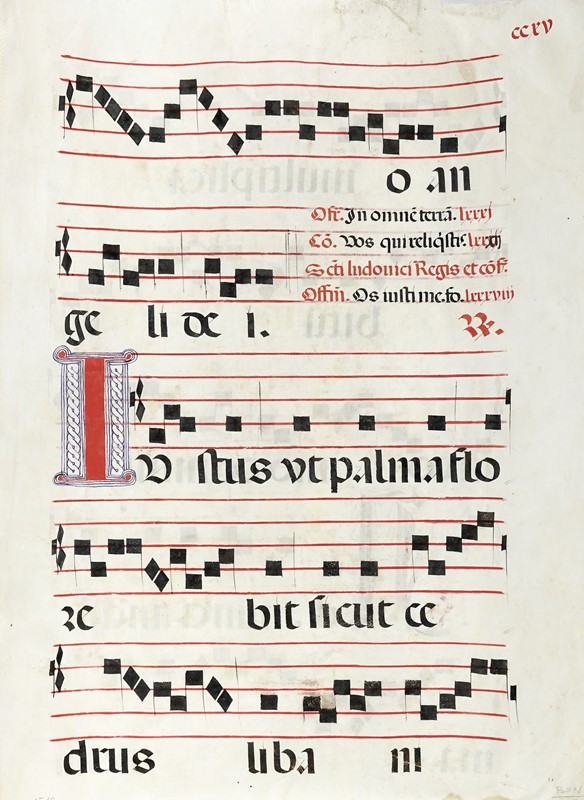 ccxv
o an
Offr. In omnē terrā. lxxxj
Cō. Vos qui reliq̄stis. lxxxij
Scti ludovici Regis et cōf.
Offm. Os iusti me. fo. lxxxviij
ge li de i. R.
IV stus vt palma flo
re bit sicut ce
drus liba ni